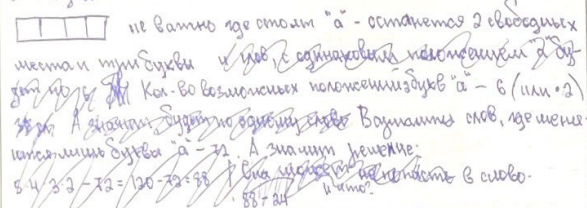 не важно где стоит "а" - останется 2 свободных
места и три буквы и слов, с одинаковым положением "а" бу-
дет по Кол-во возможных положений букв "а" - 6 (или ·2)
А значит будет по одному слову Варианты слов, где меня-
ются лишь буквы "а" - 72. А значит решение:
5·4·3·2 - 72 = 120 - 72 = 88 она может не попасть в слово.
88 - 24 и что?